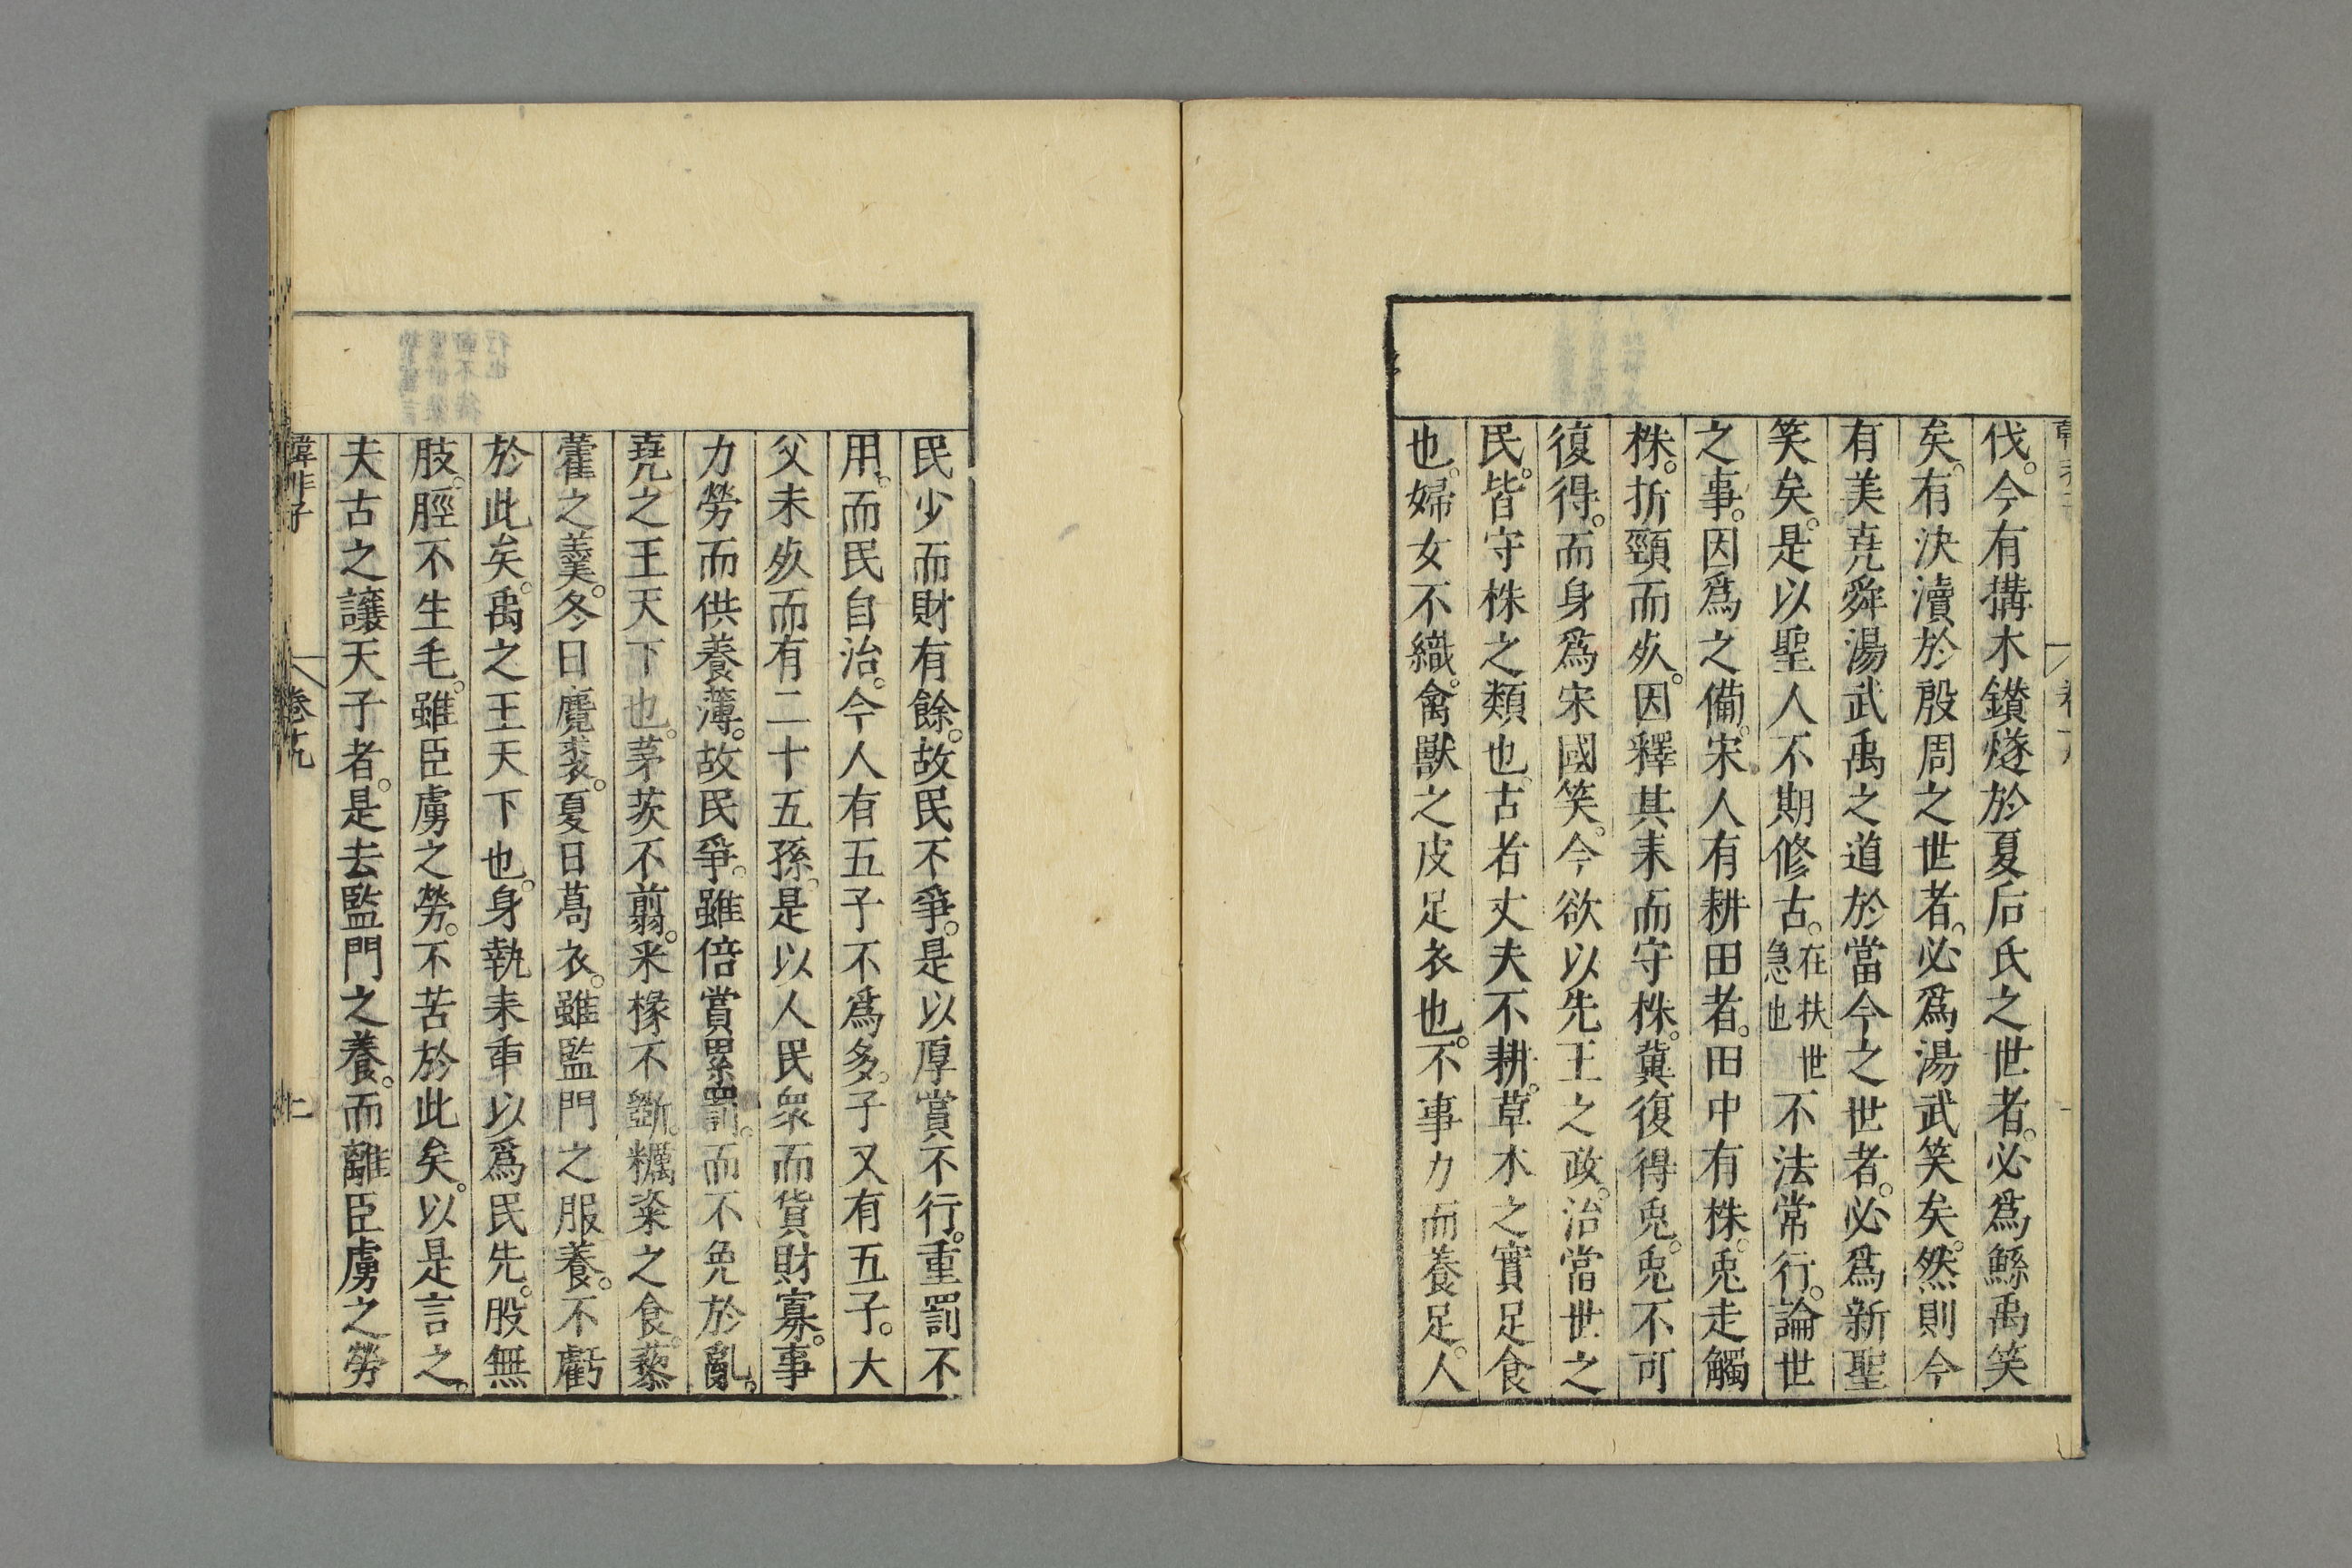 伐。今有搆木鑚燧於夏后氏之世者。必爲鯀禹笑
矣。有決瀆於殷周之世者。必爲湯武笑矣。然則今
有美尭舜湯武禹之道於當今之世者。必爲新聖
笑矣。是以聖人不期修古。在扶世急也不法常行。論世
之事。因爲之備。宋人有耕田者。田中有株。兎走觸
株。折頸而㱙。因釋其耒而守株。冀復得兎。兎不可
復得。而身爲宋國笑。今欲以先王之政。治當世之
民。皆守株之類也。古者丈夫不耕。草木之實足食
也。婦女不織。禽獸之皮足衣也。不事力而養足。人
民少而財有餘。故民不爭。是以厚賞不行。重罰不
用。而民自治。今人有五子不爲多。子又有五子。大
父未㱙而有二十五孫。是以人民衆而貨財寡。事
力勞而供養薄。故民爭。雖倍賞累罰。而不免於亂。
尭之王天下也。茅茨不翦。采椽不斲。糲粢之食。藜
藿之羹。冬日麑裘。夏日葛衣。雖監門之服養。不虧
於此矣。禹之王天下也。身執耒臿以爲民先。股無
胈。脛不生毛。雖臣虜之勞。不苦於此矣。以是言之。
夫古之讓天子者。是去監門之養。而離臣虜之勞
韓非子 卷十九 二